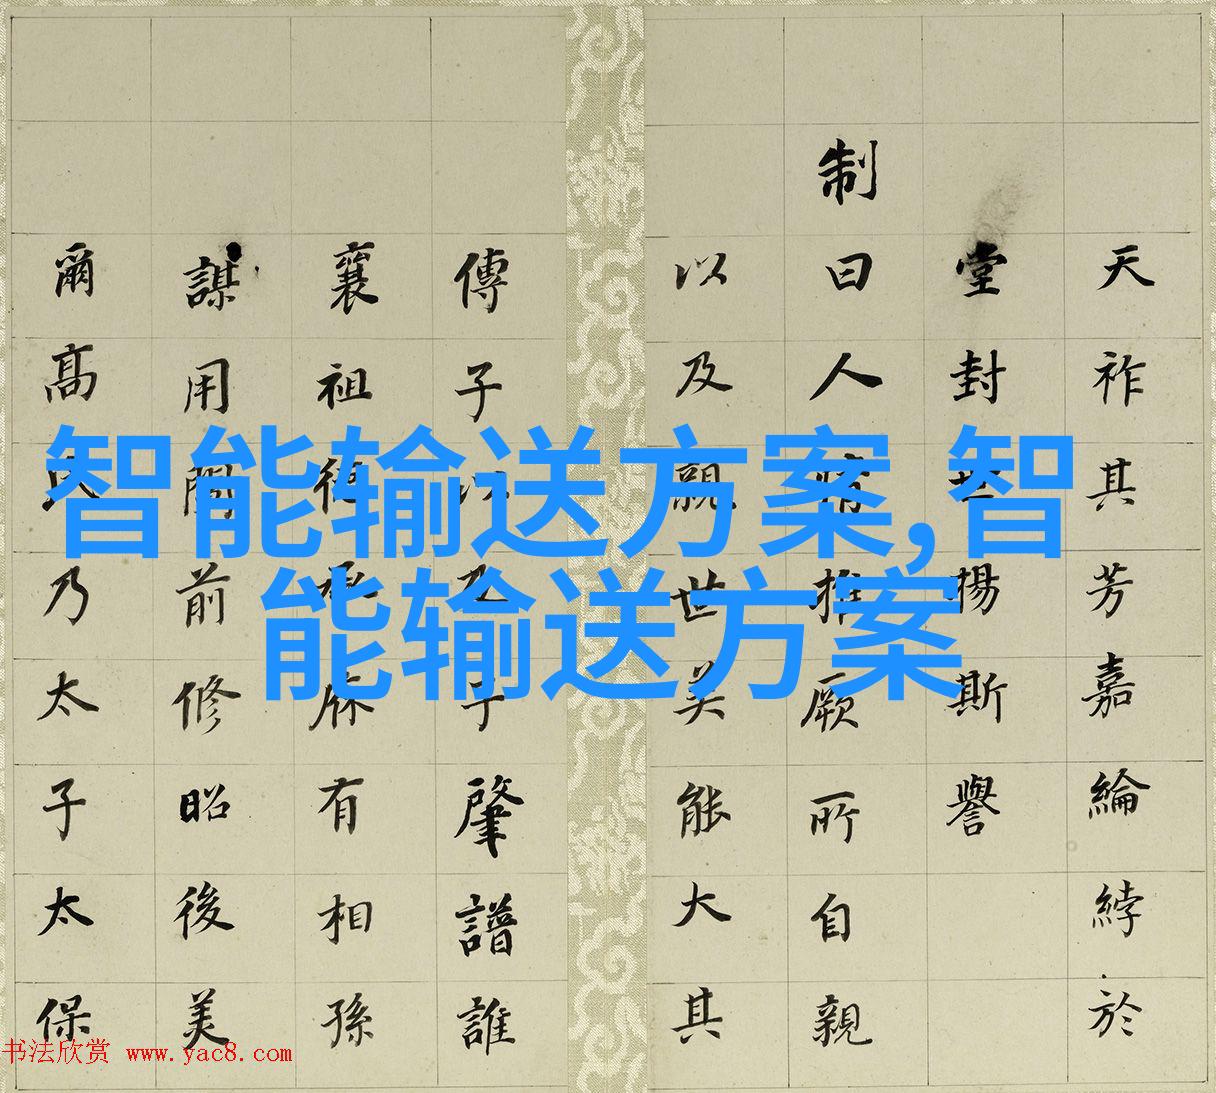 天祚其芳嘉綸綍於
堂封世揚斯譽
制曰人情推厥所自親
以及親世美能大其
傳子以及子肇譜誰
襄祖庥有相孫
謀用前修昭後美
爾高氏乃太子太保
智能输送方案,智
能输送方案
书法欣赏 www.yac8.com